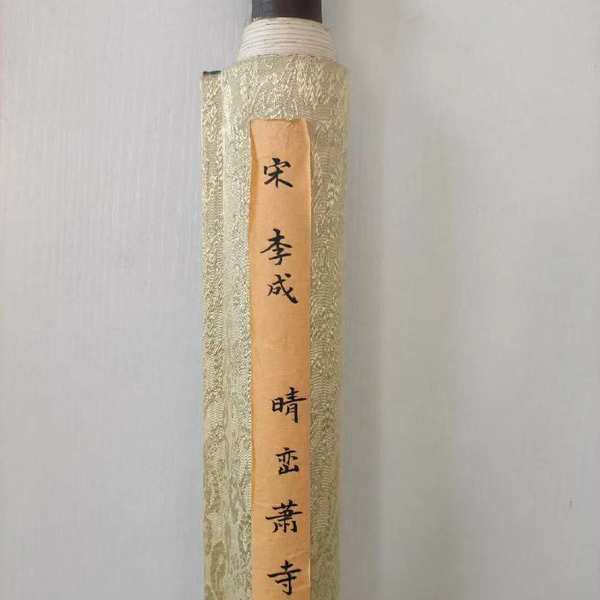 宋 李成 晴峦萧寺